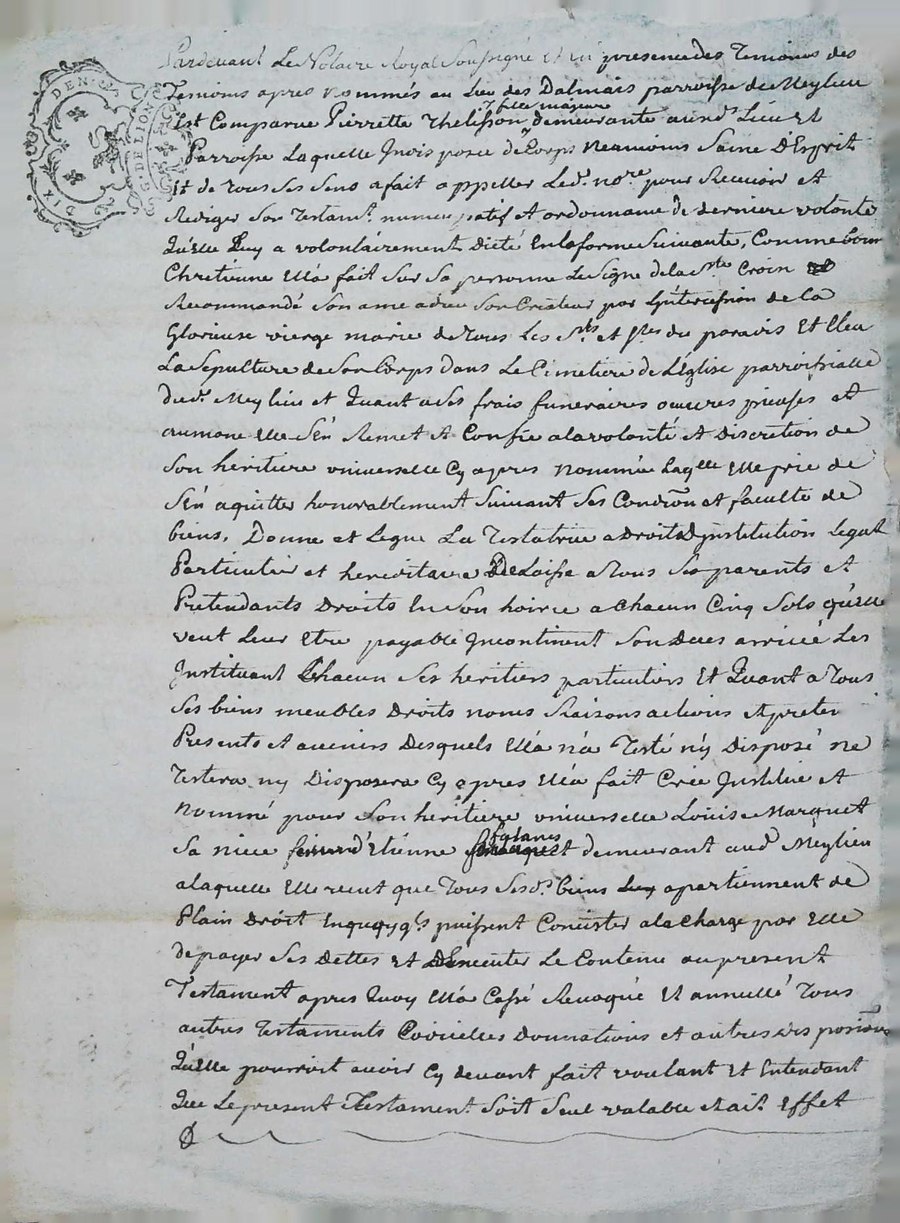 DIX DEN.ERS G. DE LION
Pardevant Le Notaire Royal Soussigné Et en presence des Temoins des
Temoins apres nommés au Lieu des Dalmais parroisse de Meylieu
Est Comparue Pierrette Thelisson fille majeure demeurante aud. Lieu Et
Parroisse Laquelle de Corps Neamoins Saine D'Esprit
Et de tous Ses Sens a fait appeller Led. nore pour Recevoir Et
Rediger Son Testamt. nuncupatif Et ordonnance de derniere volonté
Qu'elle Luy a volontairement Dicté En la forme Suivante, Comme bonne
Chretienne Ella fait Sur Sa personne Le Signe de la Ste Croix
Recommandé Son ame a dieu Son Createur par L'intercession de la
Glorieuse vierge marie de tous Les Sts et Stes du paradis Et Eleu
La Sepulture de Son Corps dans Le Cimetiere de L'Eglise parroissialle
dud. Meylieu et Quant a Ses frais funeraires oeuvres pieuses et
aumone Elle S'en Remet Et Confie a la volonté Et Discretion de
Son heritiere universelle Cy apres nommée Laqlle Elle prie de
S'en aquitter honorablement Suivant Ses Condiōn et faculté de
biens, Donne et Legue La Testatrice a Droits D'institution Legat
Particulier et hereditaire Delaisse a tous Ses parents et
Pretendants Droits En Son hoirie a Chacun Cinq Sols qu'elle
veut Leur Etre payable Incontinent Son Deces arrivé Les
Instituant Chacun Ses heritiers particuliers Et Quant a Tous
Ses biens meubles Droits noms Raisons actions Et preten
Presents Et avenirs Desquels Ella n'a Testé n'y Disposé ne
Testera ny Disposera Cy apres Ella fait Crée Institué Et
Nommé pour Son heritiere universelle Louise Marquet
Sa niece d'Etienne demeurant aud. Meylieu
a laquelle Elle veut que Tous Sesd. biens apartiennent de
Plain Droit Enquoy qls puissent Consister a la Charge par Elle
de payer Ses Dettes Et D'Executer Le Contenu au present
Testament apres Quoy Ella Cassé Revoqué Et annullé Tous
autres Testaments Codicilles Donnations et autres dis posiōns
Qu'elle pourroit avoir Cy devant fait voulant Et Entendant
Que Le present Testament Soit Seul valable Et ait Effet